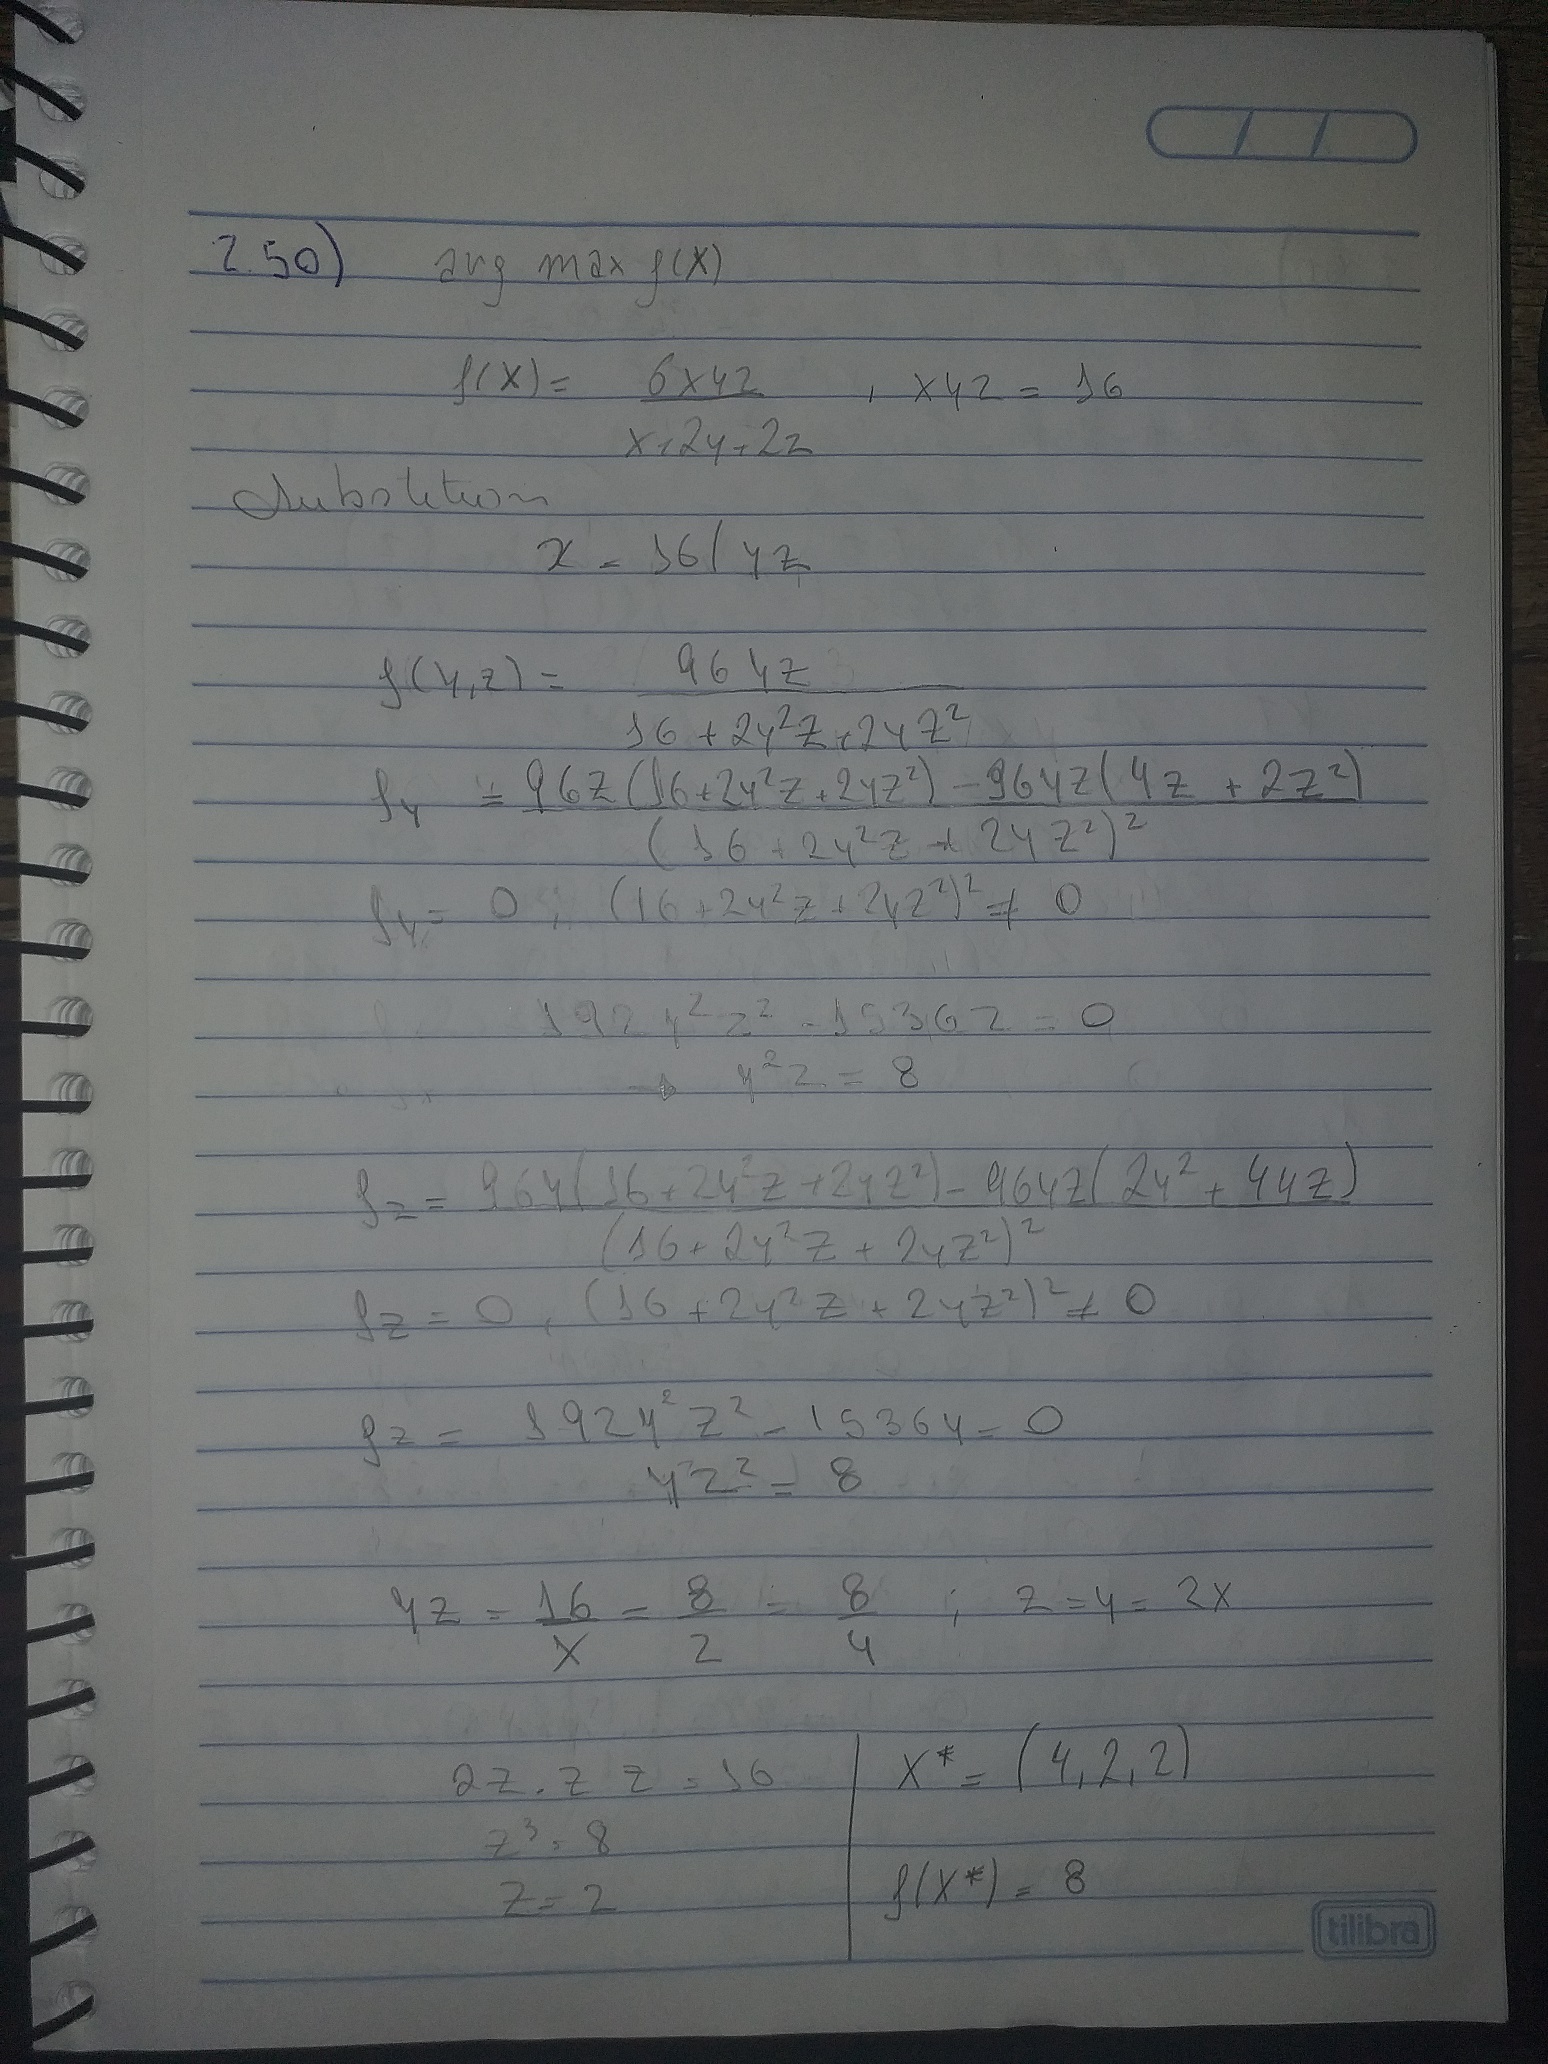 2.50) arg max f(X)
f(X) = 6xyz / x+2y+2z , xyz = 16
Substitution
x = 16/yz
f(y,z) = 96yz / 16 + 2y²z + 2yz²
fy = 96z(16+2y²z+2yz²) - 96yz(4z + 2z²) / (16 + 2y²z + 2yz²)²
fy = 0 ; (16+2y²z+2yz²)² ≠ 0
192y²z² - 1536z = 0
→ y²z = 8
fz = 96y(16+2y²z+2yz²) - 96yz(2y² + 4yz) / (16+2y²z + 2yz²)²
fz = 0, (16+2y²z + 2yz²)² ≠ 0
fz = 192y²z² - 1536y = 0
yz² = 8
yz = 16/x = 8/z = 8/y ; z = y = 2x
2z.z z = 16
z³ = 8
z = 2
X* = (4,2,2)
f(X*) = 8
tilibra